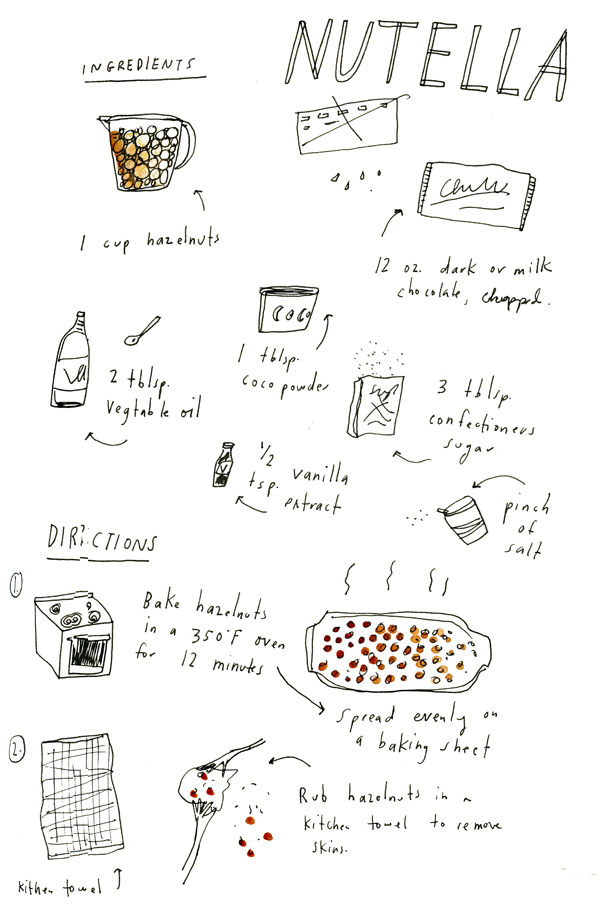 INGREDIENTS
NUTELLA
1 cup hazelnuts
12 oz. dark or milk
chocolate, chopped.
COCO
1 tblsp.
coco powder
2 tblsp.
vegtable oil
3 tblsp.
confectioners
sugar
V
1/2
tsp. vanilla
extract
pinch
of
salt
DIRECTIONS
1.
Bake hazelnuts
in a 350°F oven
for 12 minutes
Spread evenly on
a baking sheet
2.
Rub hazelnuts in a
kitchen towel to remove
skins.
kitchen towel